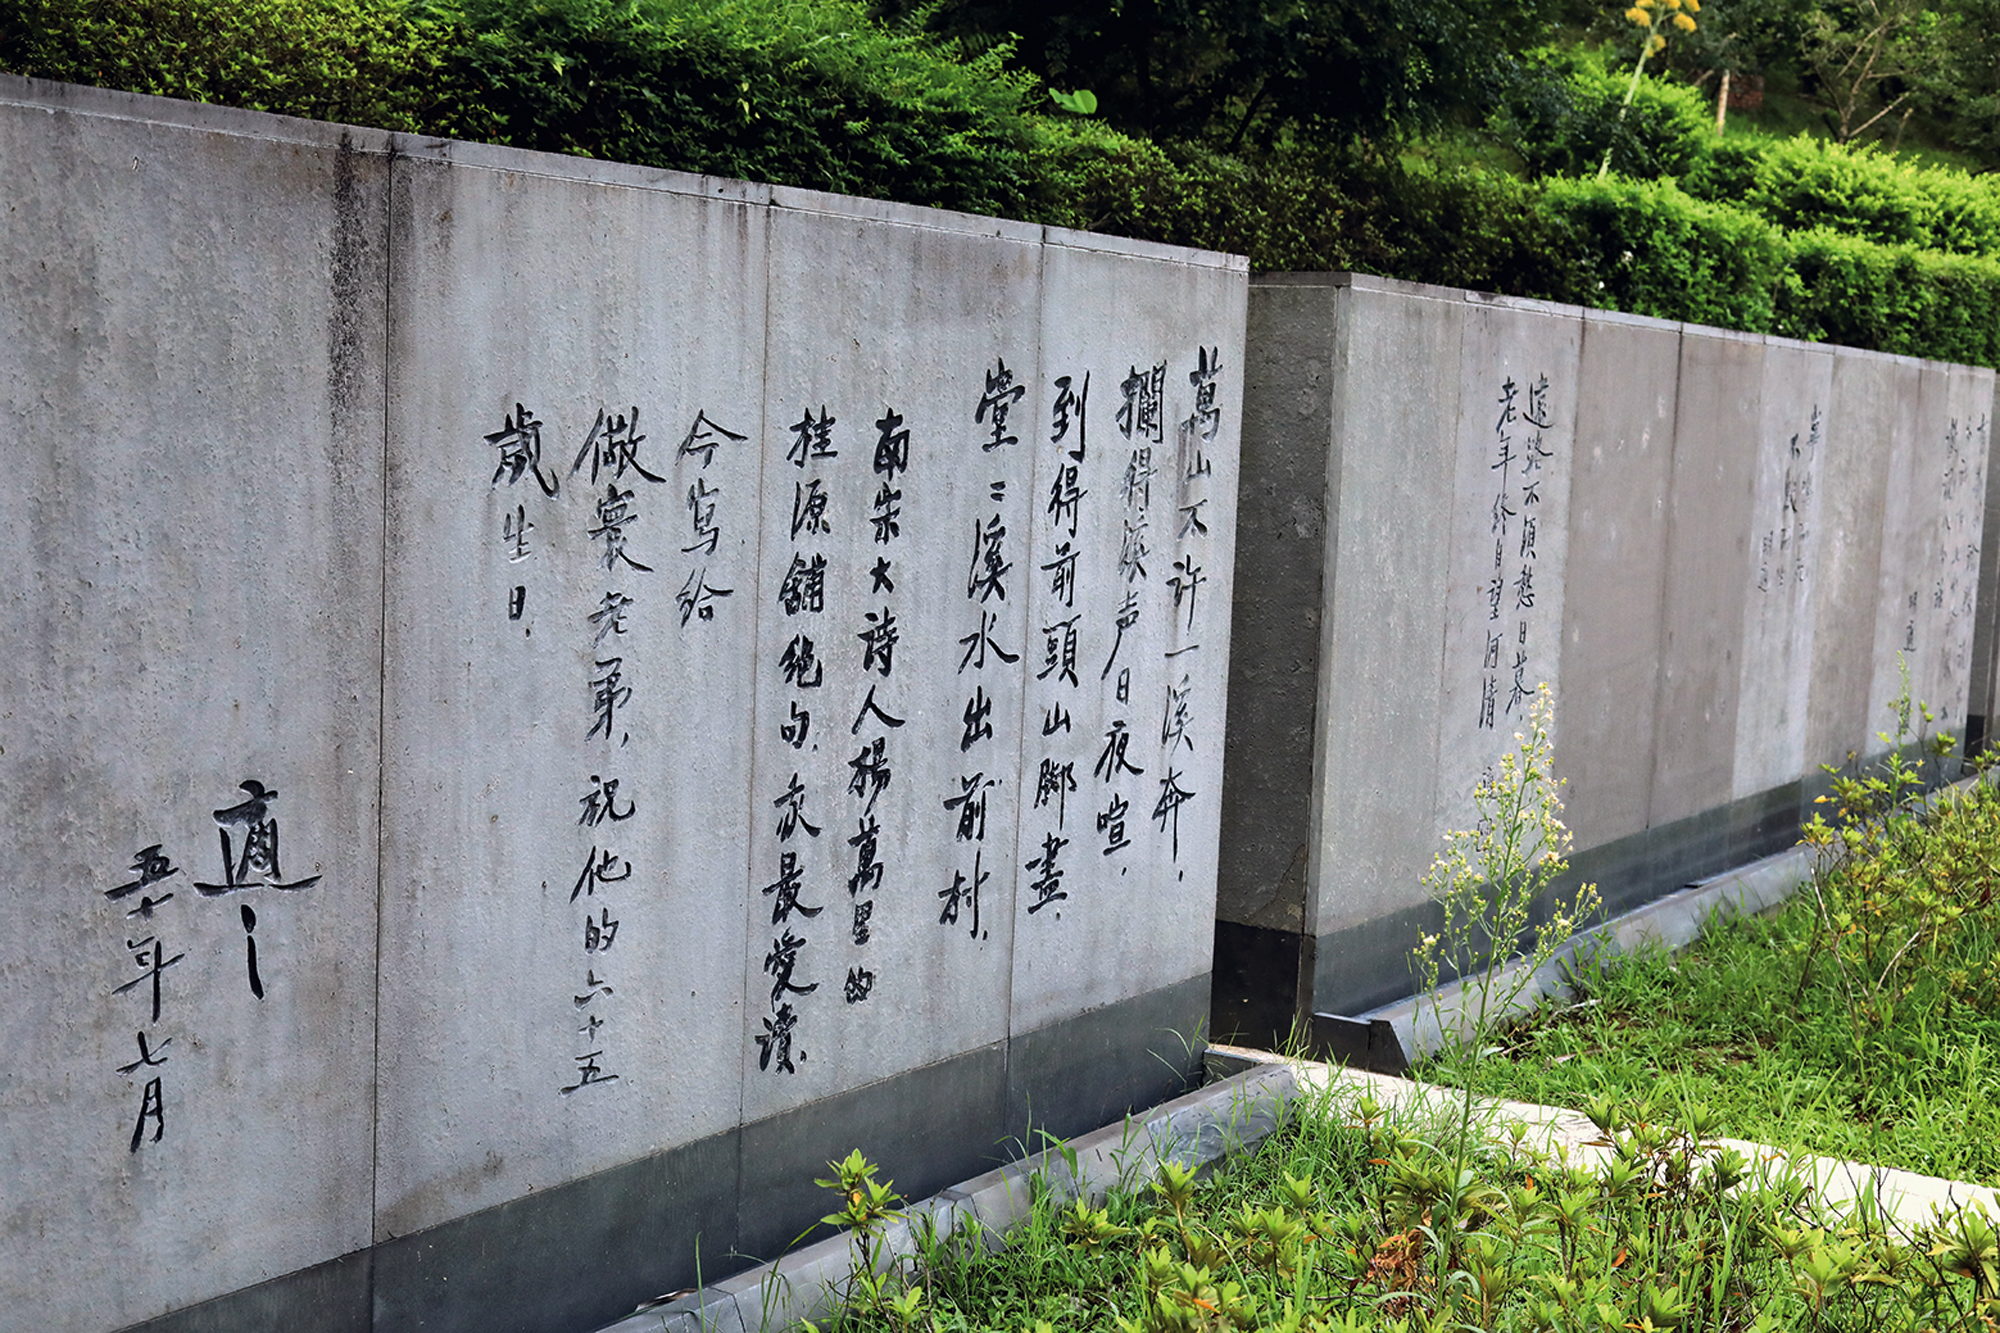 萬山不許一溪奔，
攔得溪声日夜喧，
到得前頭山脚盡，
堂〻溪水出前村，
南宋大詩人楊萬里的
桂源舖絕句，我最愛讀，
今寫給
儆寰老弟，祝他的六十五
歲生日，
適之
五十年七月
遠路不須愁日暮，
老年終自望河清
寧鳴而死
不默而生
胡適
胡適